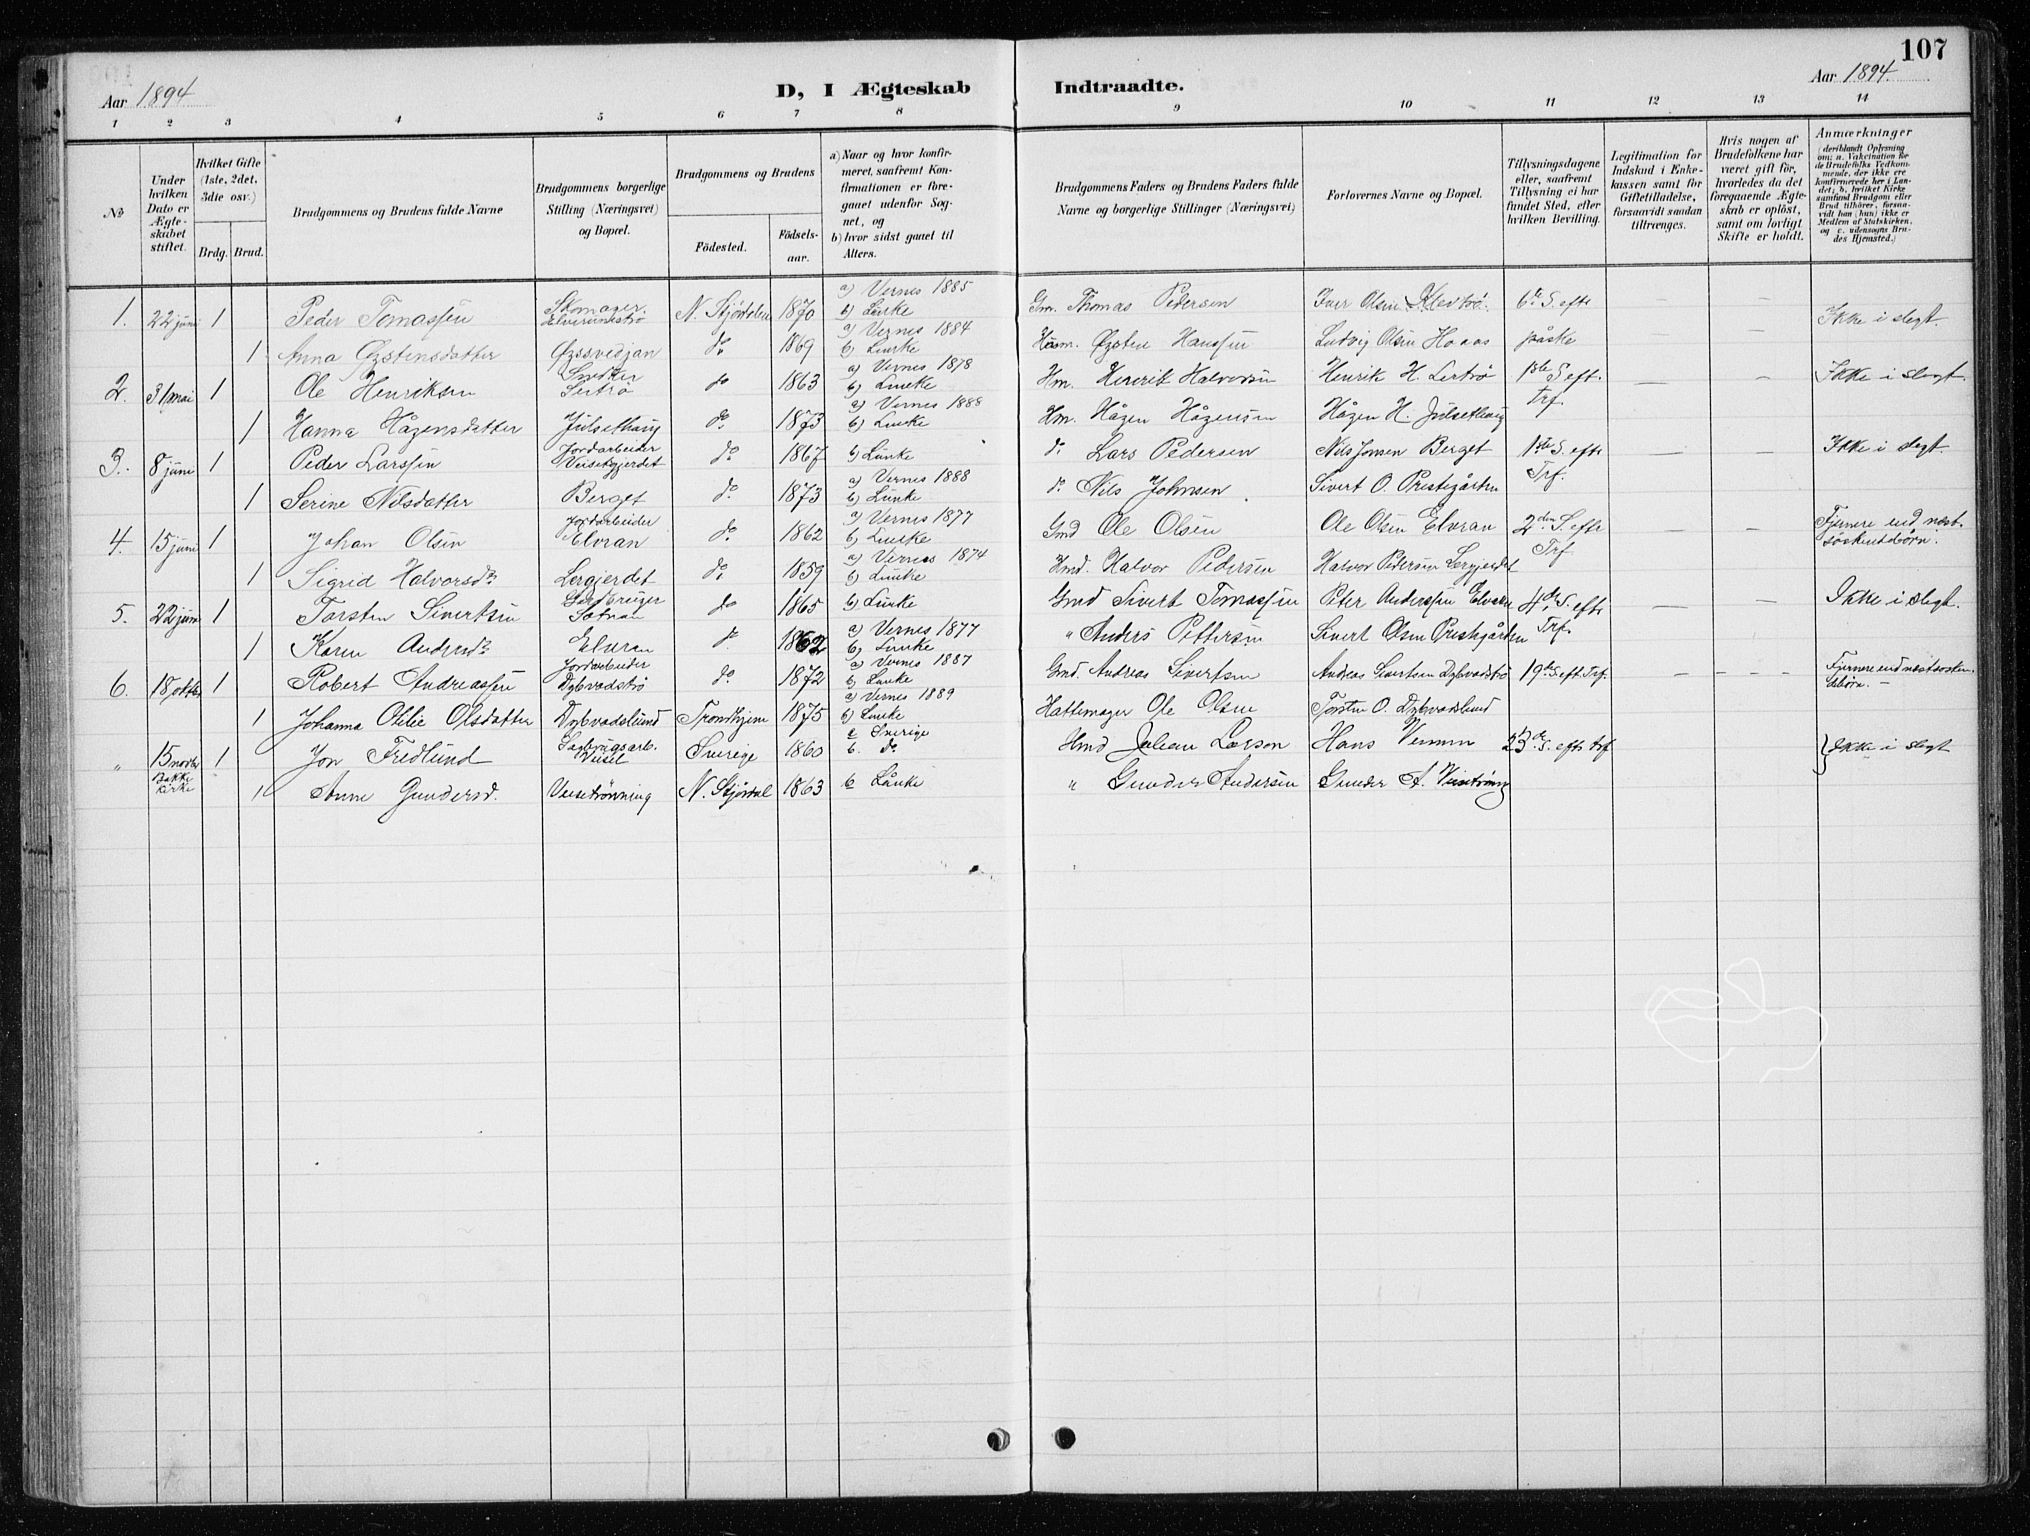 107
Aar 1894
D, I Ægteskab Indtraadte.
Aar 1894.
1 2 3 4 5 6 7 8 9 10 11 12 13 14
No
Under hvilken Dato er Ægteskabet stiftet.
Hvilket Gifte (1ste, 2det, 3die osv.)
Brdg. Brud.
Brudgommens og Brudens fulde Navne
Brudgommens borgerlige Stilling (Næringsvei) og Bopæl.
Brudgommens og Brudens
Födested. Födselsaar.
a) Naar og hvor konfirmeret, saafremt Konfirmationen er foregaaet udenfor Sognet, og
b) hvor sidst gaaet til Alters.
Brudgommens Faders og Brudens Faders fulde Navne og borgerlige Stillinger (Næringsvei)
Forlovernes Navne og Bopæl.
Tillysningsdagene eller, saafremt Tillysning ei har fundet Sted, efter hvilken Bevilling.
Legitimation for Indskud i Enkekassen samt for Giftetilladelse, forsaavidt saadan tiltrænges.
Hvis nogen af Brudefolkene har været gift för, hvorledes da det foregaaende Ægteskab er oplöst, samt om lovligt Skifte er holdt.
Anmærkninger
(deriblandt Oplysning om: a. Vakcination for de Brudefolks Vedkommende, der ikke ere konfirmerede her i Landet; b. hvilket Kirkesamfund Brudgom eller Brud tilhörer, forsaavidt han (hun) ikke er Medlem af Statskirken, og c. udensogns Brudes Hjemsted.)
1. 22 juni 1 Peder Tomassen Skomager N. Stjørdalen 1870 a) Vernes 1885 b) Lånke Gm. Thomas Pedersen Iver Olsen 6te S. efte — — Ikke i slegt.
1 Anna Øzstensdatter Øzssvedjan do 1869 a) Vernes 1884 b) Lånke Øzsten Hanssen Ludvig Olsen påske
2. 31 mai 1 Ole Henriksen Snedker Lertrø do 1863 a) Vernes 1878 b) Lånke Hm. Henrik Halvorsen Henrik H. Lertrø 1ste S. eft. Trf. — — Ikke i slegt.
1 Hanna Hågensdatter Julsethaug do 1873 a) Vernes 1888 b) Lånke Hm. Hågen Hågensen Hågen H. Julsethaug
3. 8 juni 1 Peder Larssen Jordarbeider do 1867 b) Lånke do Lars Pedersen Nils Jonsen Berget 1ste S. efte Trf. — — Ikke i slegt.
1 Serine Nilsdatter Berget do 1873 a) Vernes 1888 b) Lånke do Nils Johnsen Sivert O. Prestegården
4. 15 juni 1 Johan Olsen Jordarbeider Elvran do 1862 a) Vernes 1877 b) Lånke Gmd Ole Olsen Ole Olsen Elvran 2den S. efte Trf — — Fjernere end nøst. søskendebørn.
1 Sigrid Halvorsdr Lergjerdet do 1859 a) Vernes 1874 b) Lånke Hmd. Halvor Pedersen Halvor Pedersen Lergjerdet
5. 22 juni 1 Torsten Sivertsen Gårdbruger do 1865 b) Lånke Gmd Sivert Tomassen Peter Anderssen Elvran 4de S. efte Trf. — — Ikke i slegt.
1 Karen Andersdr Elvran do 1862 a) Vernes 1877 b) Lånke " Anders Pettersen Sivert Olsen Prestegården
6. 18 oktbr 1 Robert Andreassen Jordarbeider Dybvadstrø do 1872 a) Vernes 1887 b) Lånke Gmd. Andreas Sivertsen Andreas Sivertsen Dybvadstrø 19de S. eft. Trf. — — Fjernere end nøstsøskendebørn. —
1 Johanna Otilie Olsdatter Dybvadslund Trondhjem 1875 a) Vernes 1889 b) Lånke Hattemager Ole Olsen Torsten O. Dybvadslund
" 15 novbr Bakke Kirke 1 Jon Fredlund Sagbrugsarb. Sverige 1860 a Sverige b. do Hmd Johan Larson Hans 23de S. efte Trf Ikke i slegt
1 Anne Gundersd. Veisetrønning N. Stjørdal 1863 b Lånke " Gunder Andersen Gunder A.